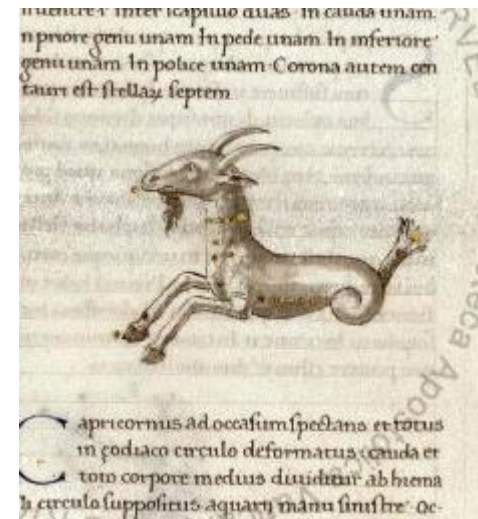 inter icapillo duas. In cauda unam.
n priore genu unam In pede unam. In inferiore
genu unam. In police unam. Corona autem cen
tauri est stellaꝝ septem
Capricornus ad occasum spectans et totus
in zodiaco circulo deformatus: cauda et
toto corpore medius diuiditur ab hiema
li circulo suppositus aquarij manu sinistre. Oc-